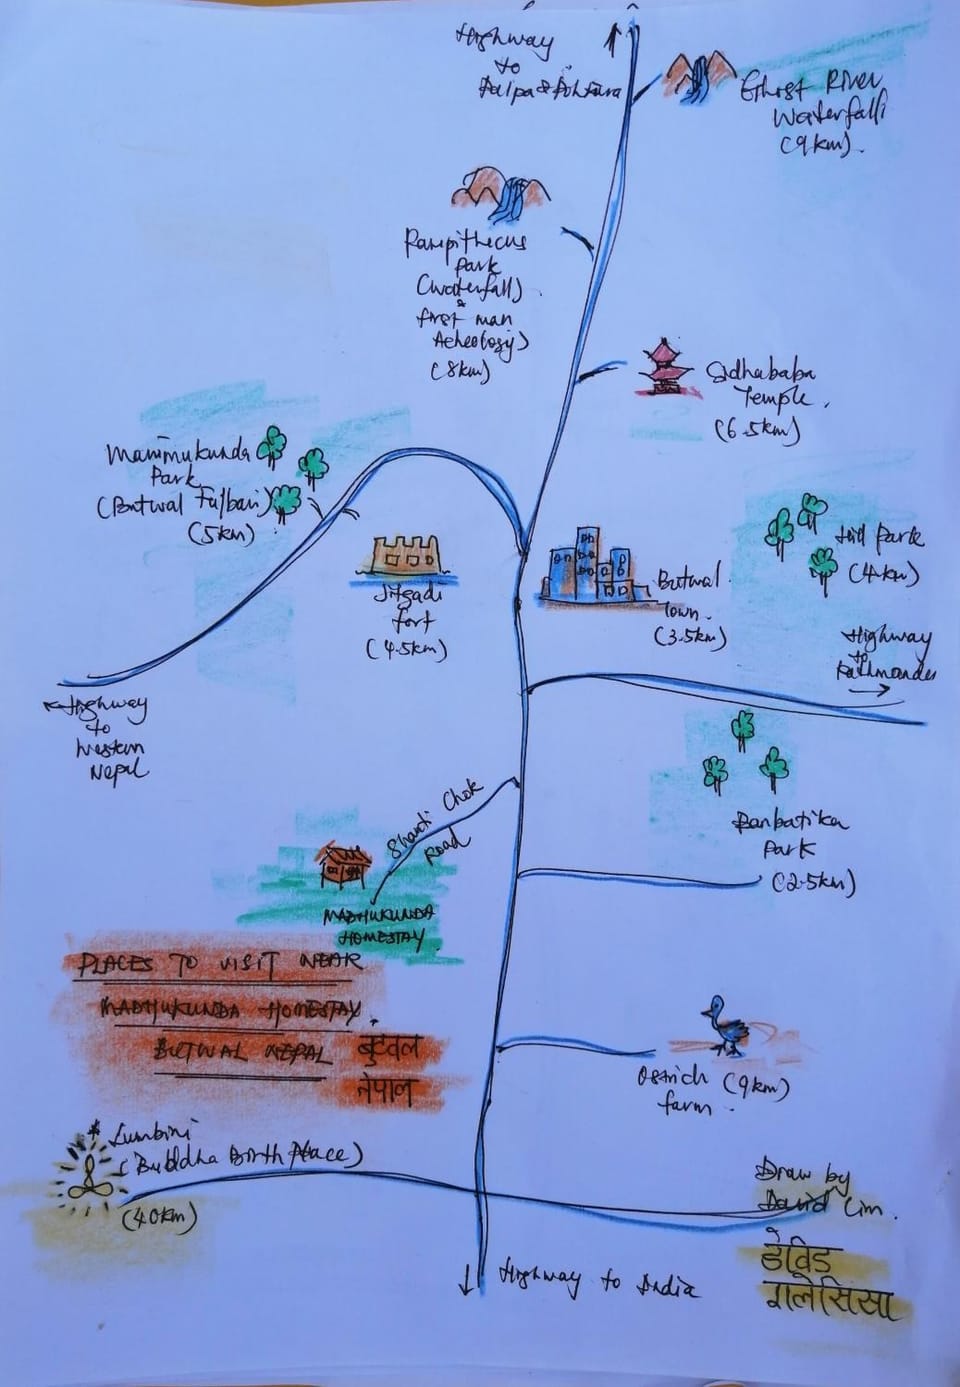 Highway
to
Palpa & Pohkara
Ghost River
Waterfall
(9km).
Rampithecus
Park
(Waterfall)
&
first man
Acheology)
(8km)
Sidhababa
Temple.
(6.5km)
Manimukunda
Park
(Butwal Fulbari)
(5km)
Jitgadi
fort
(4.5km)
Butwal
Town.
(3.5km)
Hill Park
(4km)
Highway
to
Kathmandu
Highway
to
Western
Nepal
Shanti Chok
Road
MADHUKUNDA
HOMESTAY
Banbatika
Park
(2.5km)
PLACES TO VISIT NEAR
MADHUKUNDA HOMESTAY.
BUTWAL NEPAL बुटवल
नेपाल
Ostrich (9km)
farm.
Lumbini
(Buddha Birth Place)
(40km)
Draw by
David Lim.
डेविड
Highway to India